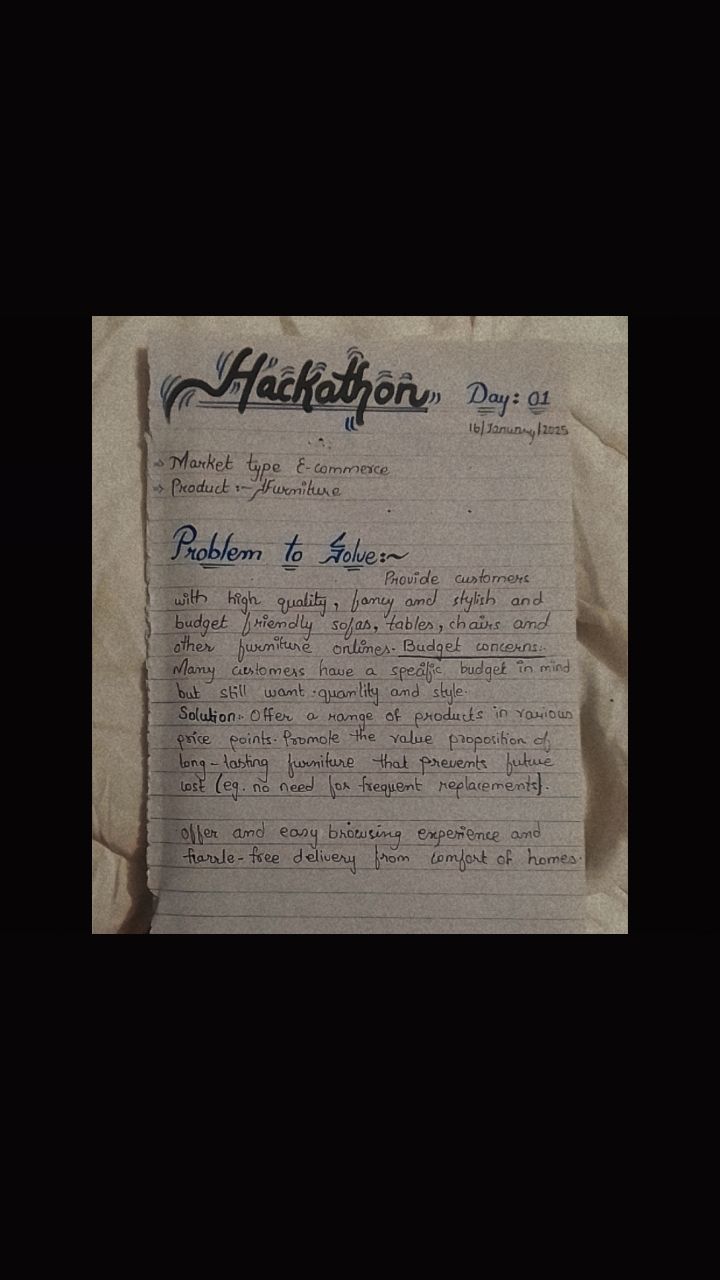 Hackathon Day: 01
16/January/2025
⇒ Market type E-commerce
⇒ Product :- Furniture
Problem to Solve:~
Provide customers
with high quality, fancy and stylish and
budget friendly sofas, tables, chairs and
other furniture onlines. Budget concerns:-
Many customers have a specific budget in mind
but still want quantity and style.
Solution:- Offer a range of products in various
price points. Promote the value proposition of
long-lasting furniture that prevents future
cost (eg. no need for frequent replacements).
offer and easy browsing experience and
hassle-free delivery from comfort of homes.